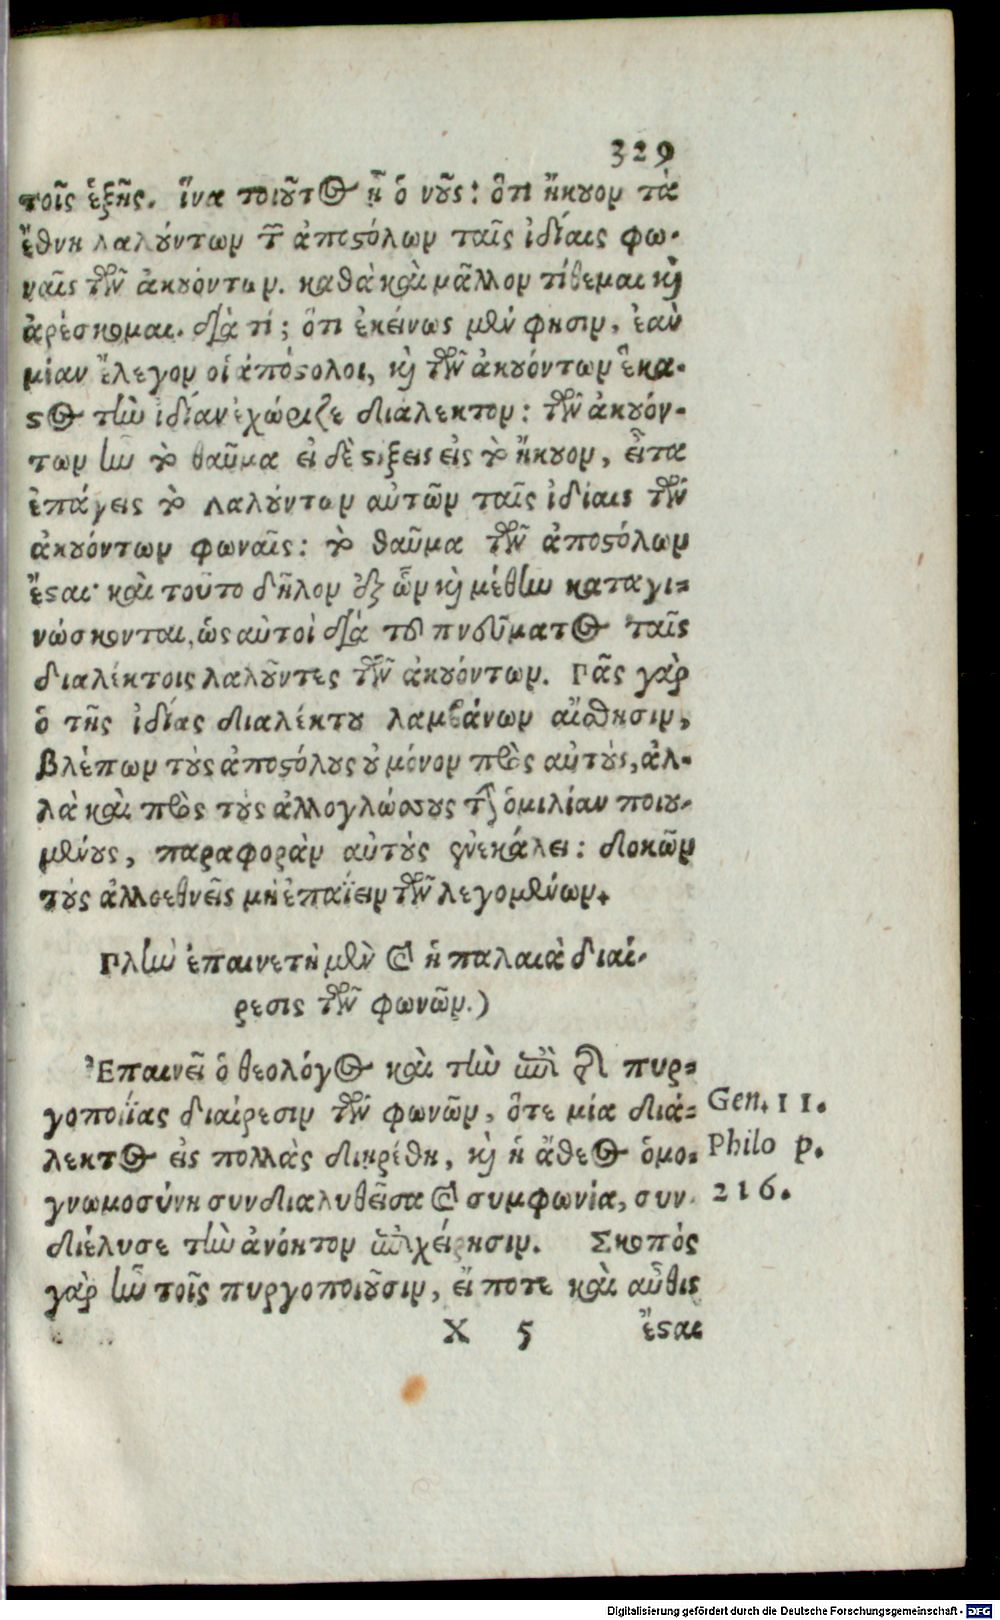 329
τοῖς ἑξῆς. ἵνα τοιοῦτος ᾖ ὁ νοῦς: ὅτι ἤκουον τὰ
ἔθνη λαλούντων τῶν ἀποστόλων ταῖς ἰδίαις φω-
ναῖς τῶν ἀκουόντων. καθὰ καὶ μᾶλλον τίθεμαι καὶ
ἀρέσκομαι. διὰ τί; ὅτι ἐκείνως μὲν φησιν, ἐὰν
μίαν ἔλεγον οἱ ἀπόστολοι, καὶ τῶν ἀκουόντων ἕκα-
στος τὴν ἰδίαν ἐχώριζε διάλεκτον: τῶν ἀκουόν-
των ἦν τὸ θαῦμα εἰ δὲ στίξεις εἰς τὸ ἤκουον, εἶτα
ἐπάγεις τὸ λαλούντων αὐτῶν ταῖς ἰδίαις τῶν
ἀκουόντων φωναῖς: τὸ θαῦμα τῶν ἀποστόλων
ἔσται· καὶ τοῦτο δῆλον ἐξ ὧν καὶ μέθην καταγι-
νώσκονται, ὡς αὐτοὶ διὰ τοῦ πνεύματος ταῖς
διαλέκτοις λαλοῦντες τῶν ἀκουόντων. Πᾶς γὰρ
ὁ τῆς ἰδίας διαλέκτου λαμβάνων αἴσθησιν,
βλέπων τοὺς ἀποστόλους οὐ μόνον πρὸς αὐτοὺς, ἀλ-
λὰ καὶ πρὸς τοὺς ἀλλογλώσσους τὴν ὁμιλίαν ποιου-
μένους, παραφορὰν αὐτοὺς ἐνεκάλει: δοκῶν
τοὺς ἀλλοεθνεῖς μὴ ἐπαΐειν τῶν λεγομένων.
Πλὴν ἐπαινετὴ μὲν καὶ ἡ παλαιὰ διαί-
ρεσις τῶν φωνῶν.)
Ἐπαινεῖ ὁ θεολόγος καὶ τὴν ἐπὶ τῆς πυρ-
γοποιΐας διαίρεσιν τῶν φωνῶν, ὅτε μία διά-
λεκτος εἰς πολλὰς διῃρέθη, καὶ ἡ ἄθεος ὁμο-
γνωμοσύνη συνδιαλυθεῖσα καὶ συμφωνία, συν-
διέλυσε τὴν ἀνόητον ἐπιχείρησιν. Σκοπὸς
γὰρ ἦν τοῖς πυργοποιοῦσιν, εἴ ποτε καὶ αὖθις
Gen. 11.
Philo p.
216.
X 5 ἔσται
Digitalisierung gefördert durch die Deutsche Forschungsgemeinschaft - DFG